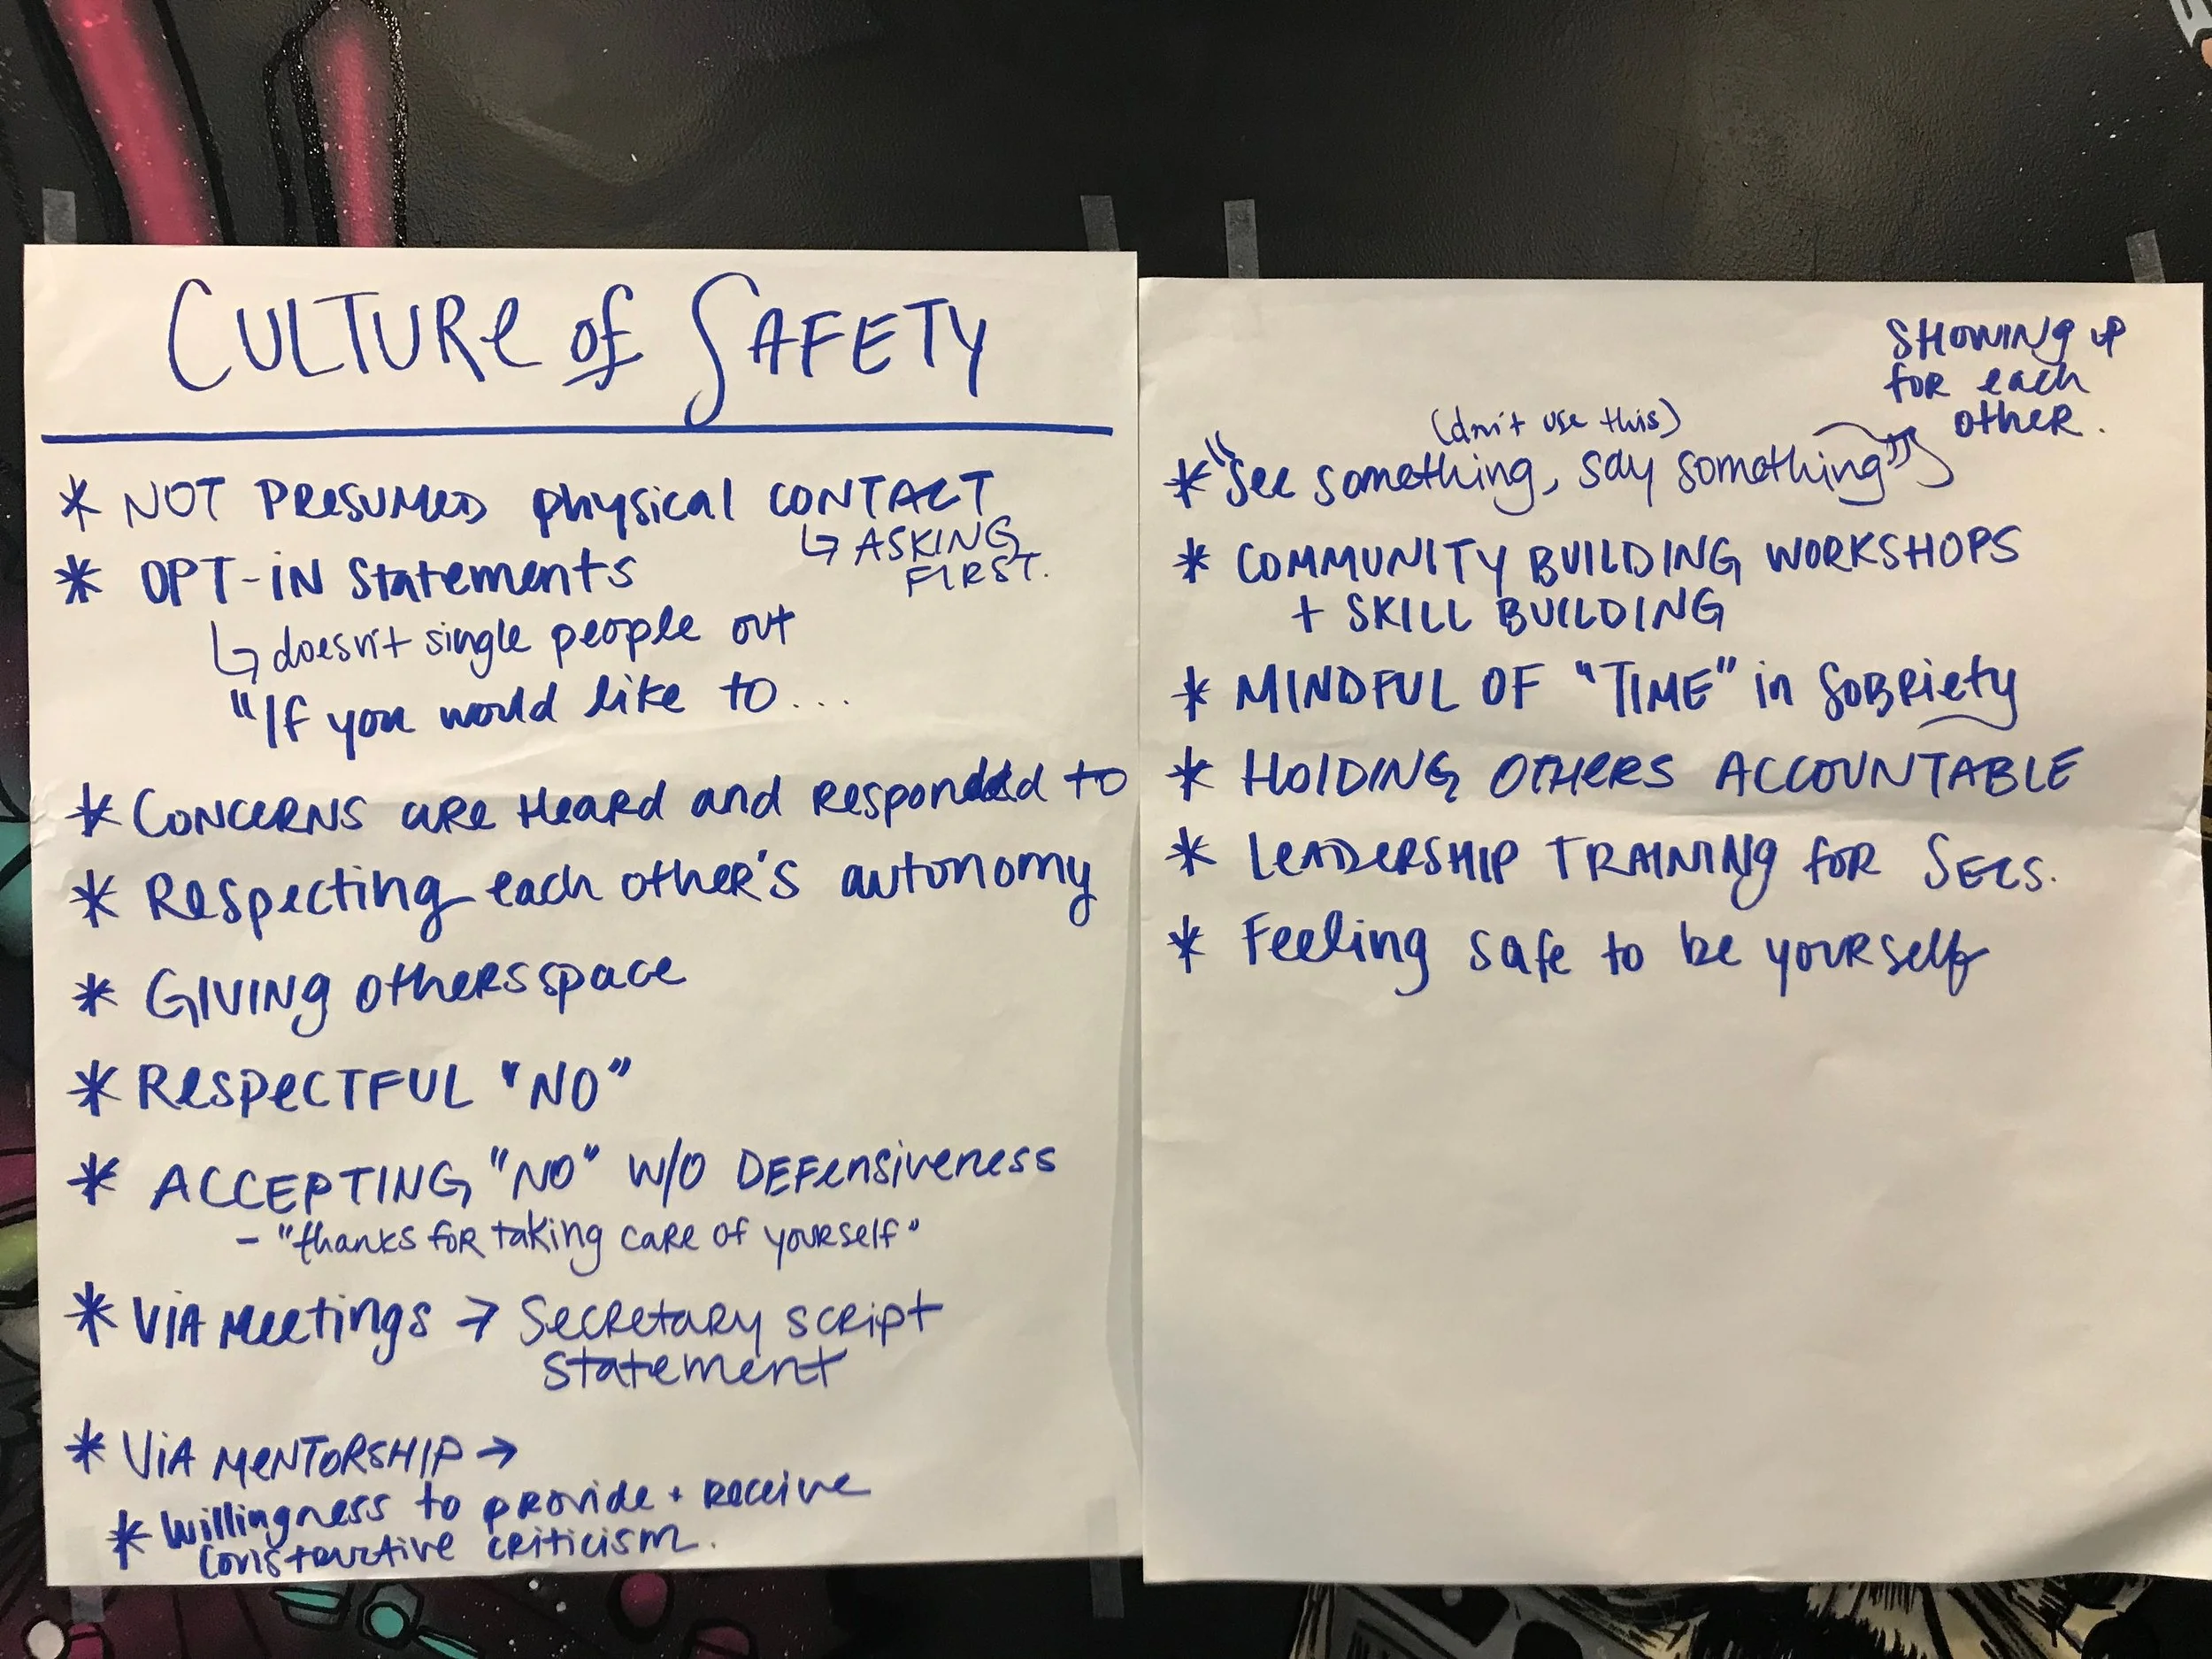 CULTURE of SAFETY
* NOT PRESUMED physical CONTACT
↳ ASKING
FIRST.
* OPT-IN Statements
↳ doesn't single people out
"If you would like to...
* CONCERNS are Heard and responded to
* Respecting each other's autonomy
* GIVING others space
* RESPECTFUL "NO"
* ACCEPTING "NO" W/O DEFensiveness
- "thanks for taking care of yourself"
* VIA Meetings → Secretary script
statement
* VIA MENTORSHIP →
* Willingness to provide + receive
constructive criticism.
SHOWING up
for each
other.
(don't use this)
* "See something, say something"
* COMMUNITY BUILDING WORKSHOPS
+ SKILL BUILDING
* MINDFUL OF "TIME" in Sobriety
* HOLDING OTHERS ACCOUNTABLE
* LEADERSHIP TRAINING for SECS.
* Feeling safe to be yourself